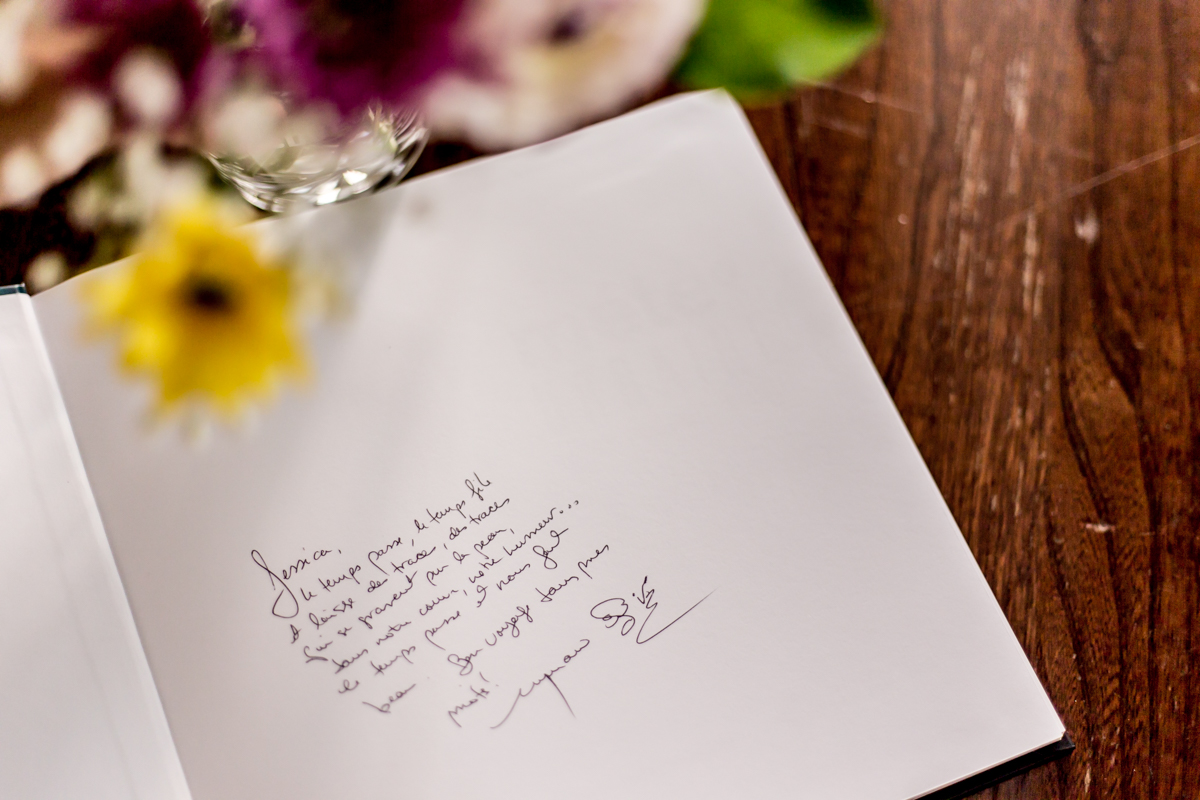 Jessica,
le temps passe, le temps file
et laisse des traces, des traces
qui se gravent sur la peau,
dans notre cœur, notre humeur...
le temps passe et nous fait
beau. Bon voyage dans mes